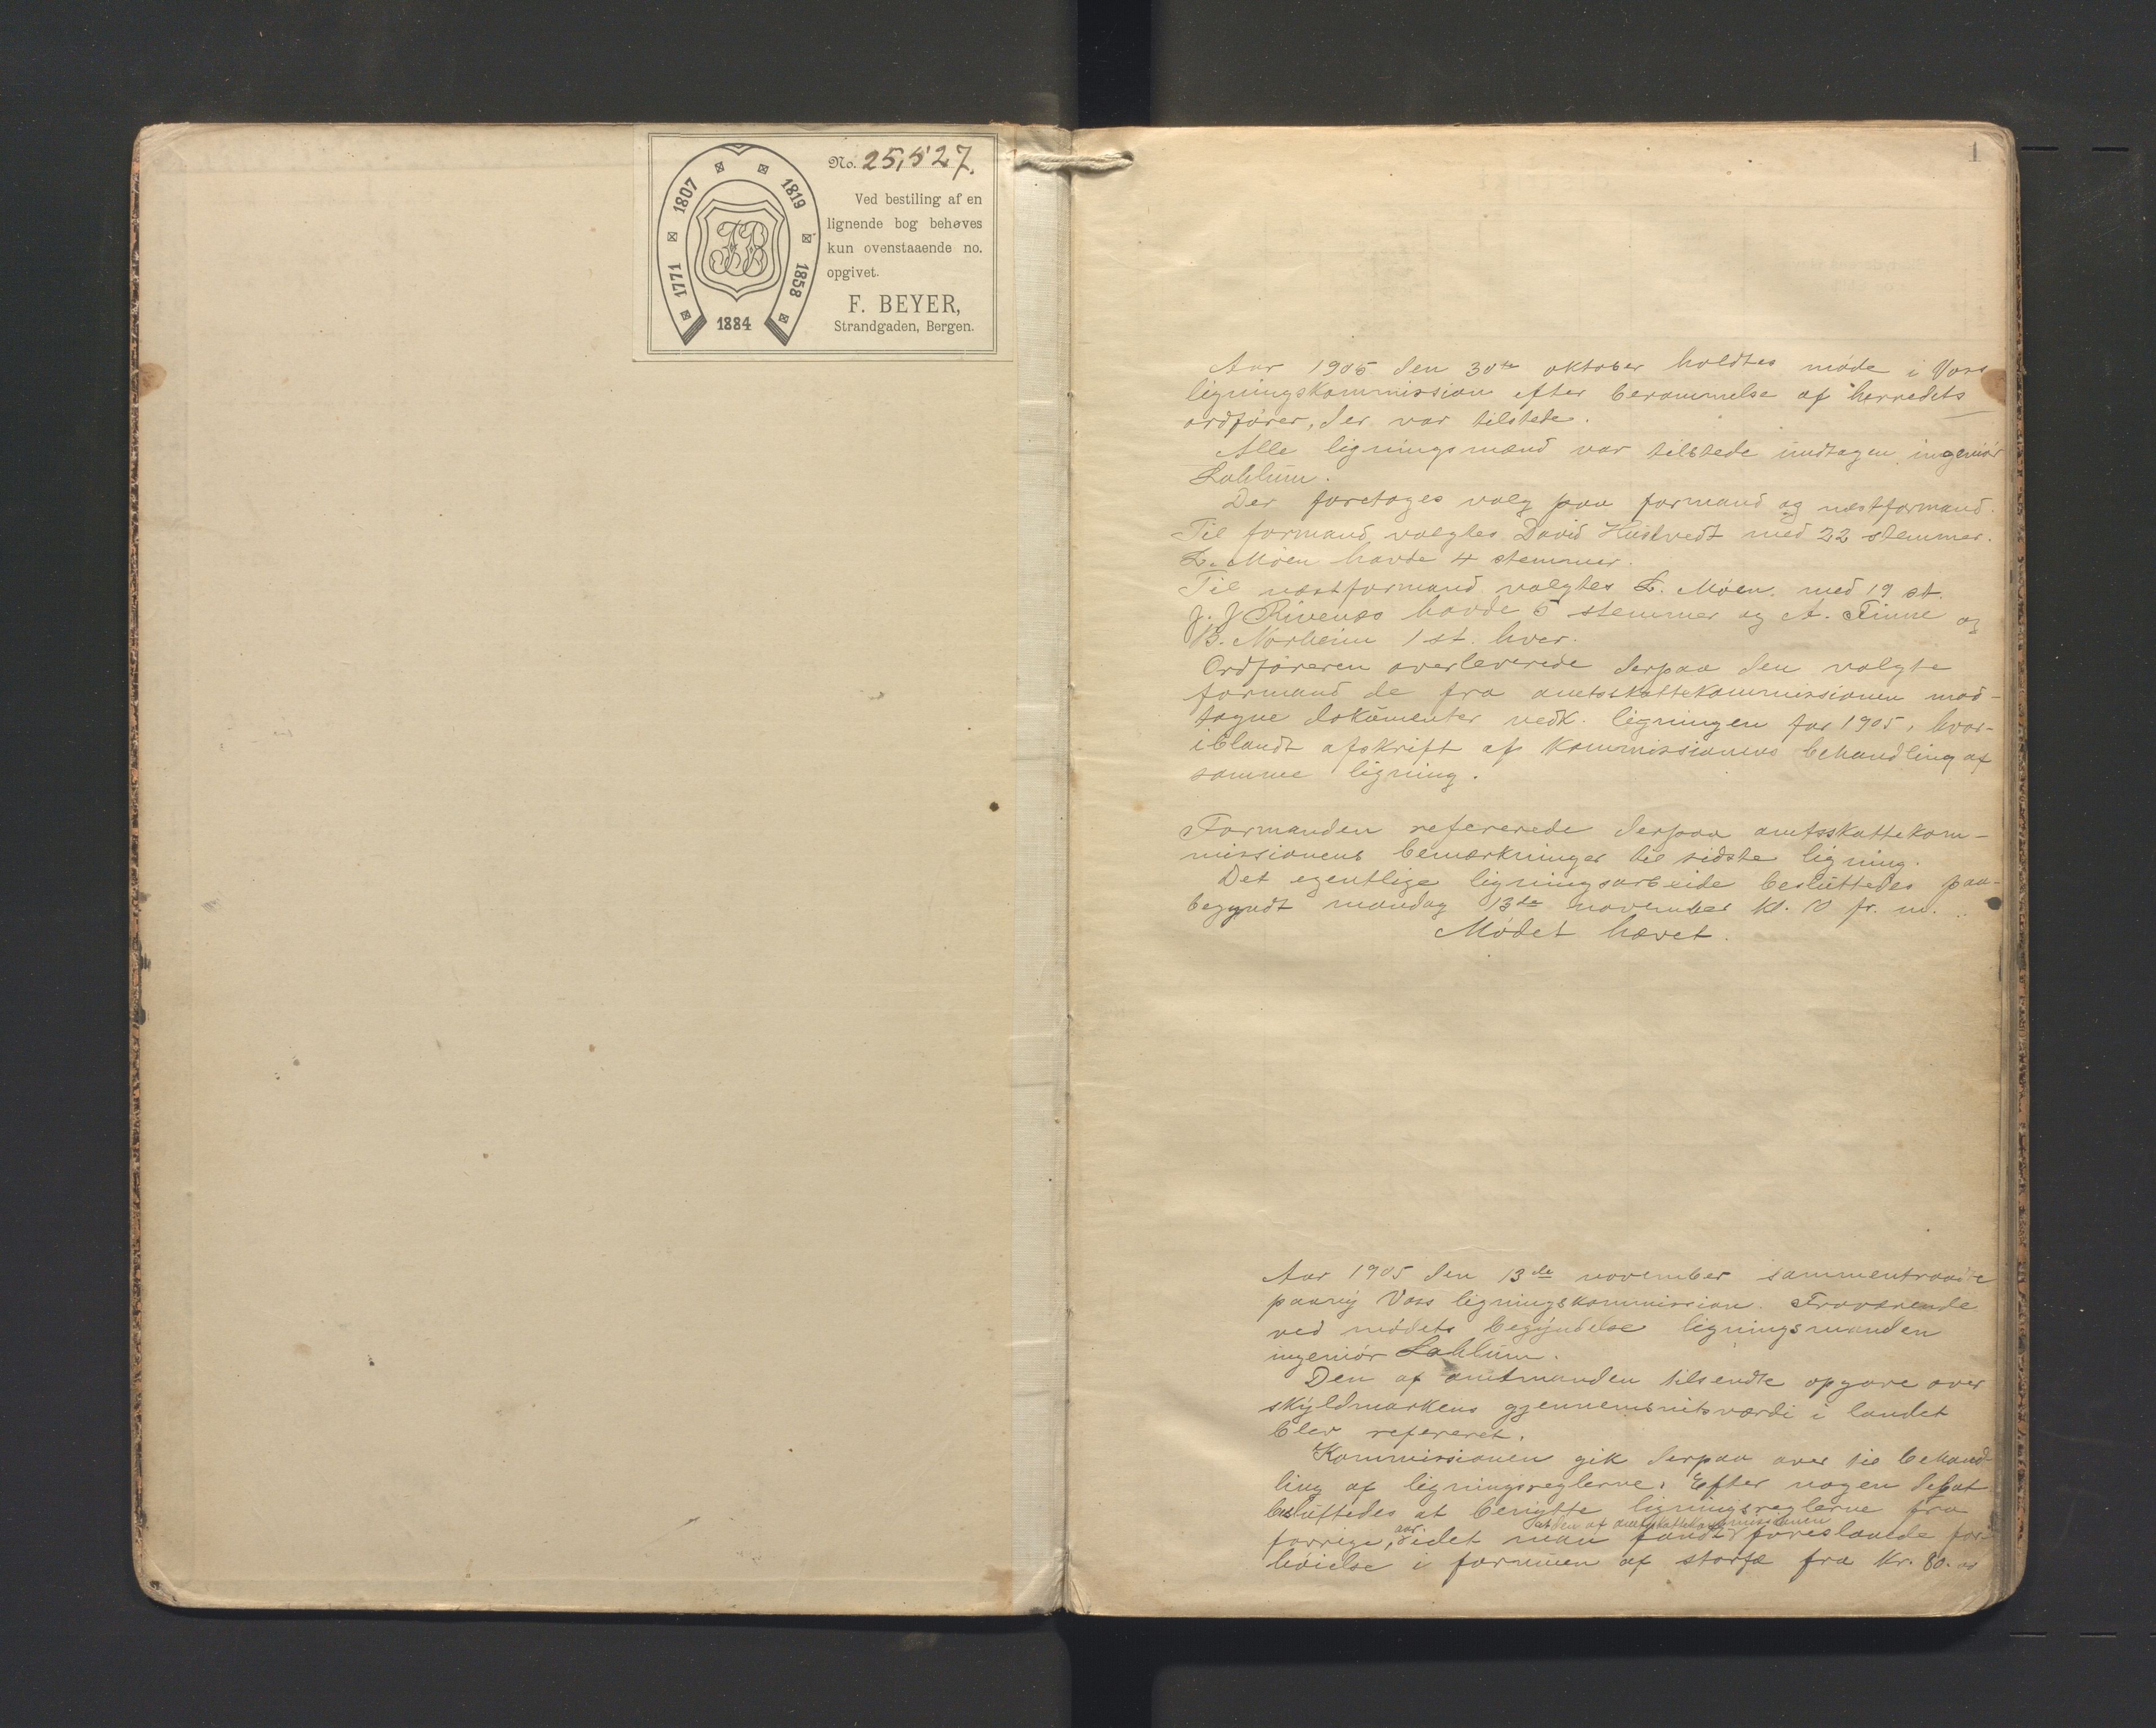 No. 25,527.
1771 1807 1819 1858
1884
FB
Ved bestiling af en
lignende bog behøves
kun ovenstaaende no.
opgivet.
F. BEYER,
Strandgaden, Bergen.
1
Aar 1905 den 30te oktober holdtes møde i Voss
ligningskommission efter berammelse af herredets
ordfører, der var tilstede.
Alle ligningsmænd var tilstede undtagen ingeniør
Lahlum.
Der foretages valg paa formand og næstformand.
Til formand valgtes David Hustvedt med 22 stemmer.
L. Møen havde 4 stemmer.
Til næstformand valgtes L. Møen med 19 st.
J. J Rivenæs havde 5 stemmer og A. Finne og
B. Nørheim 1 st. hver.
Ordføreren overleverede derpaa den valgte
formand de fra amtsskattekommissionen mod-
tagne dokumenter vedk. ligningen for 1905, hvor-
iblandt afskrift af kommissionens behandling af
samme ligning.
Formanden refererede derpaa amtsskattekom-
missionens bemærkninger til sidste ligning.
Det egentlige ligningsarbeide besluttedes paa-
begyndt mandag 13de november kl. 10 fr. m.
Mødet hævet.
Aar 1905 den 13de november sammentraadte
paany Voss ligningskommission. Fraværende
ved mødets begyndelse ligningsmanden
ingeniør Lahlum.
Den af amtmanden tilsendte opgave over
skyldmarkens gjennemsnitsværdi i landet
blev refereret.
Kommissionen gik derpaa over til behand-
ling af ligningsreglerne. Efter nogen debat
besluttedes at benytte ligningsreglerne fra
forrige aar, idet man fandt at den af amtsskattekommissionen foreslaaede for-
høielse i formuen af storfæ fra kr. 80. og